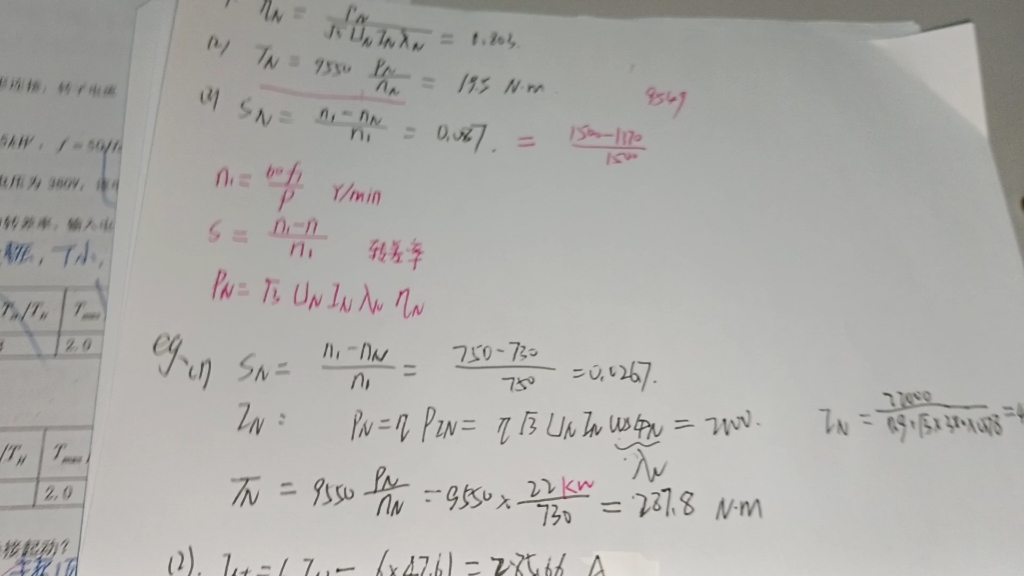 η_N = P_N / √3 U_N I_N λ_N = 0.803
(2) T_N = 9550 P_N/n_N = 195 N·m
9549
(3) S_N = (n₁-n_N)/n₁ = 0.087. = (1500-1170)/1500
n₁ = 60f₁/P r/min
S = (n₁-n)/n₁ 转差率
P_N = √3 U_N I_N λ_N η_N
eg. (1) S_N = (n₁-n_N)/n₁ = (750-730)/750 = 0.0267.
I_N: P_N = η P_IN = η √3 U_N I_N cosφ_N = 2200.
λ_N
I_N = 22000 / 0.9×√3×380×0.78 = 4
T_N = 9550 P_N/n_N = 9550 × 22kw/730 = 287.8 N·m
(2). = 6×47.61 = 285.66 A
转子电
5kW, f = 50H
压为 380V,
转差率, 输入
T小,
/T_N T_max
2.0
/T_N T_max
2.0
接起动?